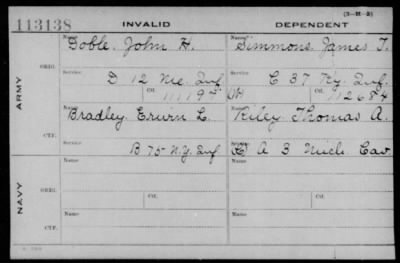 (3-M-2)
113138 INVALID DEPENDENT
Name Goble, John H. Name Simmons, James T.
ARMY
ORIG.
Service D 12 Me. Inf. Service C 37 Ky. Inf.
Ctf. 111197 Ctf. 712684
Name Bradley Erwin L. Name Riley Thomas A.
CTF.
Service B 75 N.Y. Inf Service A 3 Mich Cav.
NAVY
ORIG.
Name Name
Service Ctf. Service Ctf.
Name Name
CTF.
Service Service